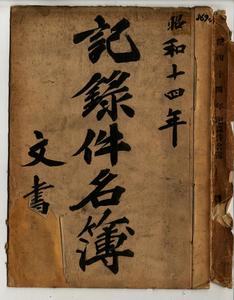 昭和十四年
記錄件名簿
文書